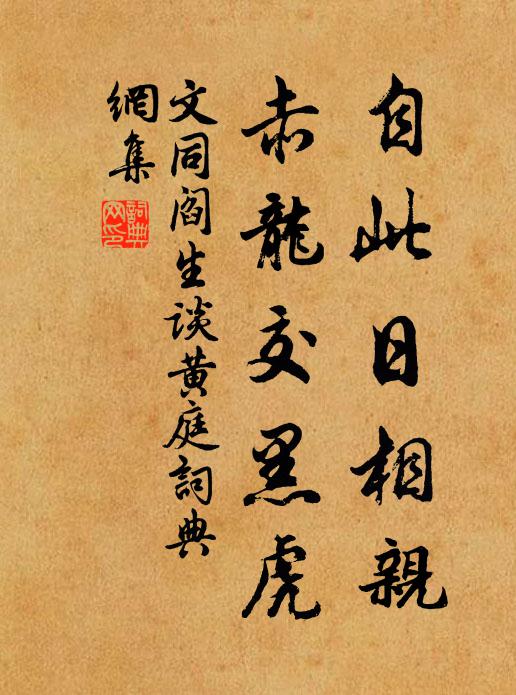 自此日相親
赤龍交黑虎
文同閻生談黄庭詞典
網集
詞典
网印